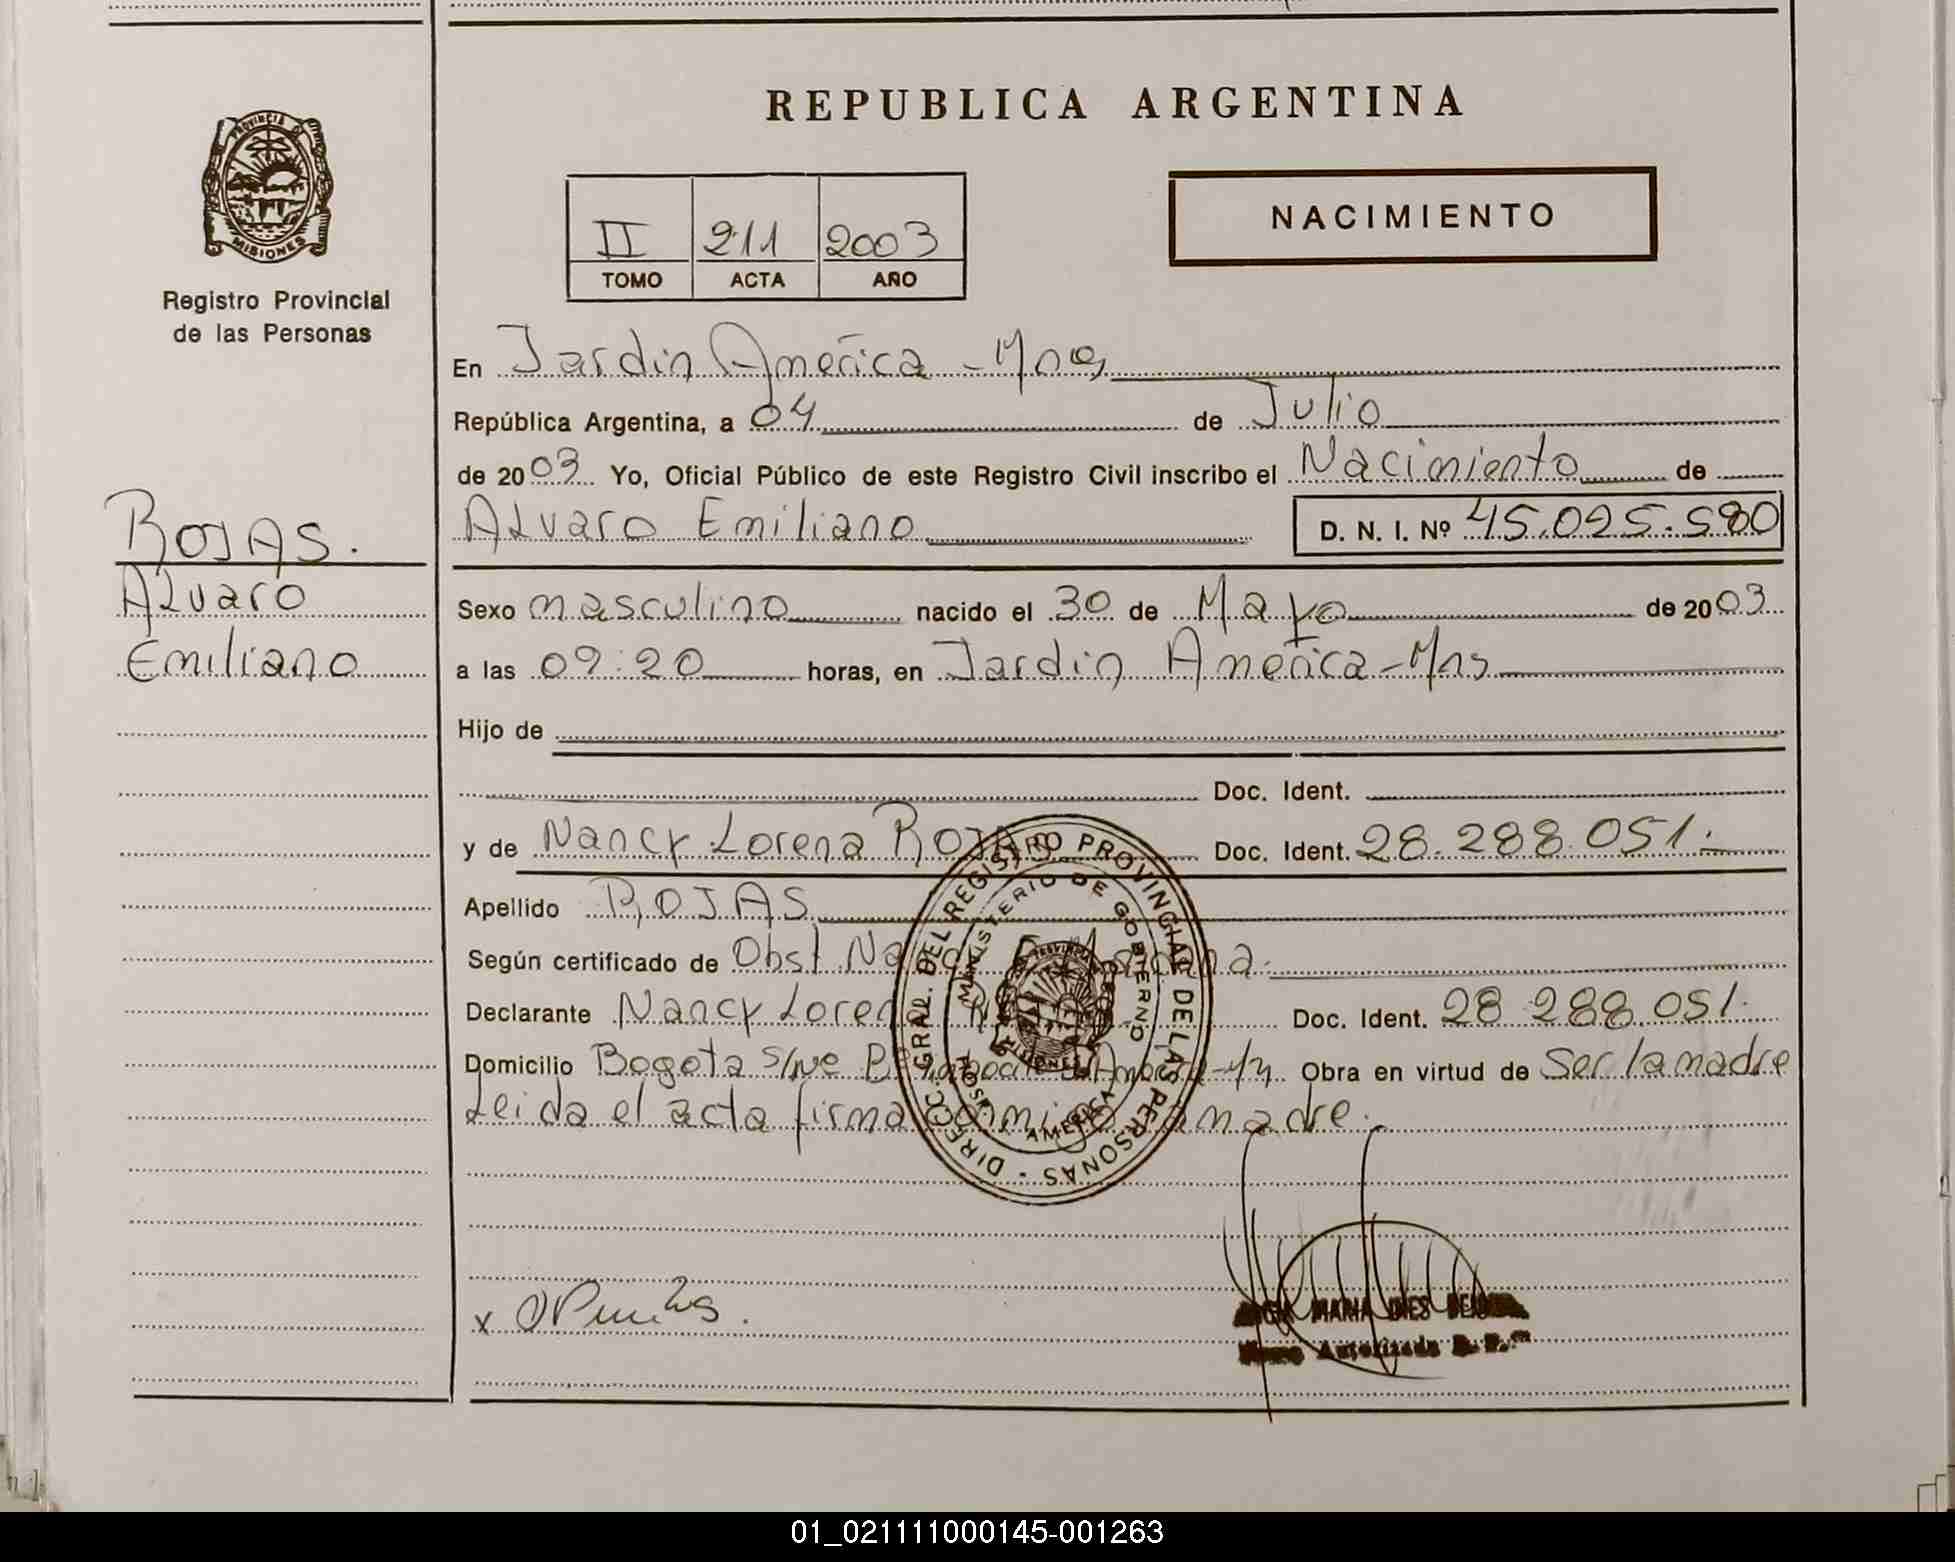 REPUBLICA ARGENTINA
PROVINCIA DE
MISIONES
Registro Provincial
de las Personas
NACIMIENTO
II 211 2003
TOMO ACTA AÑO
En Jardin América - Mnes
República Argentina, a 04 de Julio
de 2003 Yo, Oficial Público de este Registro Civil inscribo el Nacimiento de
Alvaro Emiliano D. N. I. Nº 45.025.580
ROJAS.
Alvaro
Emiliano
Sexo masculino nacido el 30 de Mayo de 2003
a las 09:20 horas, en Jardin América - Mns
Hijo de
Doc. Ident.
y de Nancy Lorena ROJAS Doc. Ident. 28.288.051.-
Apellido ROJAS
Según certificado de Obst
Declarante Nancy Lorena Doc. Ident. 28.288.051.
Domicilio Bogota s/nº Obra en virtud de Ser la madre
Leida el acta firma conmigo la madre.
DIRECC. GRAL. DEL REGISTRO PROVINCIAL DE LAS PERSONAS
MINISTERIO DE GOBIERNO
AMERICA
MARIA
Autorizada
01_021111000145-001263